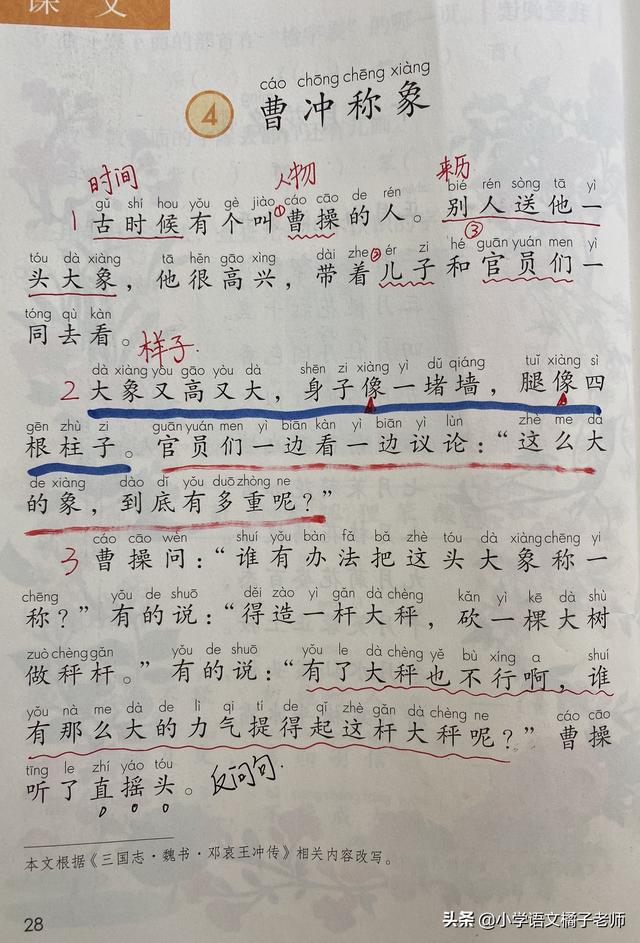 课文
cáo chōng chēng xiàng
4 曹冲称象
时间 人物 来历
gǔ shí hou yǒu gè jiào cáo cāo de rén bié rén sòng tā yì
1 古时候有个叫①曹操的人。别人送他一
③
tóu dà xiàng tā hěn gāo xìng dài zhe ②ér zi hé guān yuán men yì
头大象，他很高兴，带着儿子和官员们一
tóng qù kàn
同去看。
样子.
dà xiàng yòu gāo yòu dà shēn zi xiàng yì dǔ qiáng tuǐ xiàng sì
2 大象又高又大，身子像一堵墙，腿像四
gēn zhù zi guān yuán men yì biān kàn yì biān yì lùn zhè me dà
根柱子。官员们一边看一边议论：“这么大
de xiàng dào dǐ yǒu duō zhòng ne
的象，到底有多重呢？”
cáo cāo wèn shuí yǒu bàn fǎ bǎ zhè tóu dà xiàng chēng yi
3 曹操问：“谁有办法把这头大象称一
chēng yǒu de shuō děi zào yì gǎn dà chèng kǎn yì kē dà shù
称？”有的说：“得造一杆大秤，砍一棵大树
zuò chèng gǎn yǒu de shuō yǒu le dà chèng yě bù xíng a shuí
做秤杆。”有的说：“有了大秤也不行啊，谁
yǒu nà me dà de lì qi tí de qǐ zhè gǎn dà chèng ne cáo cāo
有那么大的力气提得起这杆大秤呢？”曹操
tīng le zhí yáo tóu
听了直摇头。反问句.
本文根据《三国志·魏书·邓哀王冲传》相关内容改写。
28
头条 @小学语文橘子老师